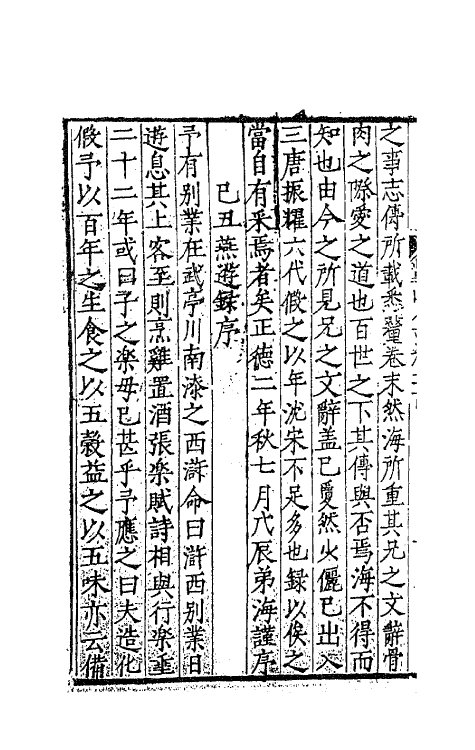 之事志傳所載悉釐卷末然海所重其兄之文辭骨
肉之際愛之道也百世之下其傳與否焉海不得而
知也由今之所見兄之文辭盖已夐然火儷已出入
三唐振耀六代假之以年沈宋不足多也録以俟之
當自有采焉者矣正德二年秋七月戊辰弟海謹序
己丑燕遊録序
予有别業在武亭川南漆之西滸命曰滸西别業日
遊息其上客至則烹雞置酒張楽賦詩相與行楽垂
二十二年或曰子之楽毋已甚乎予應之曰夫造化
假予以百年之生食之以五穀益之以五味亦云備